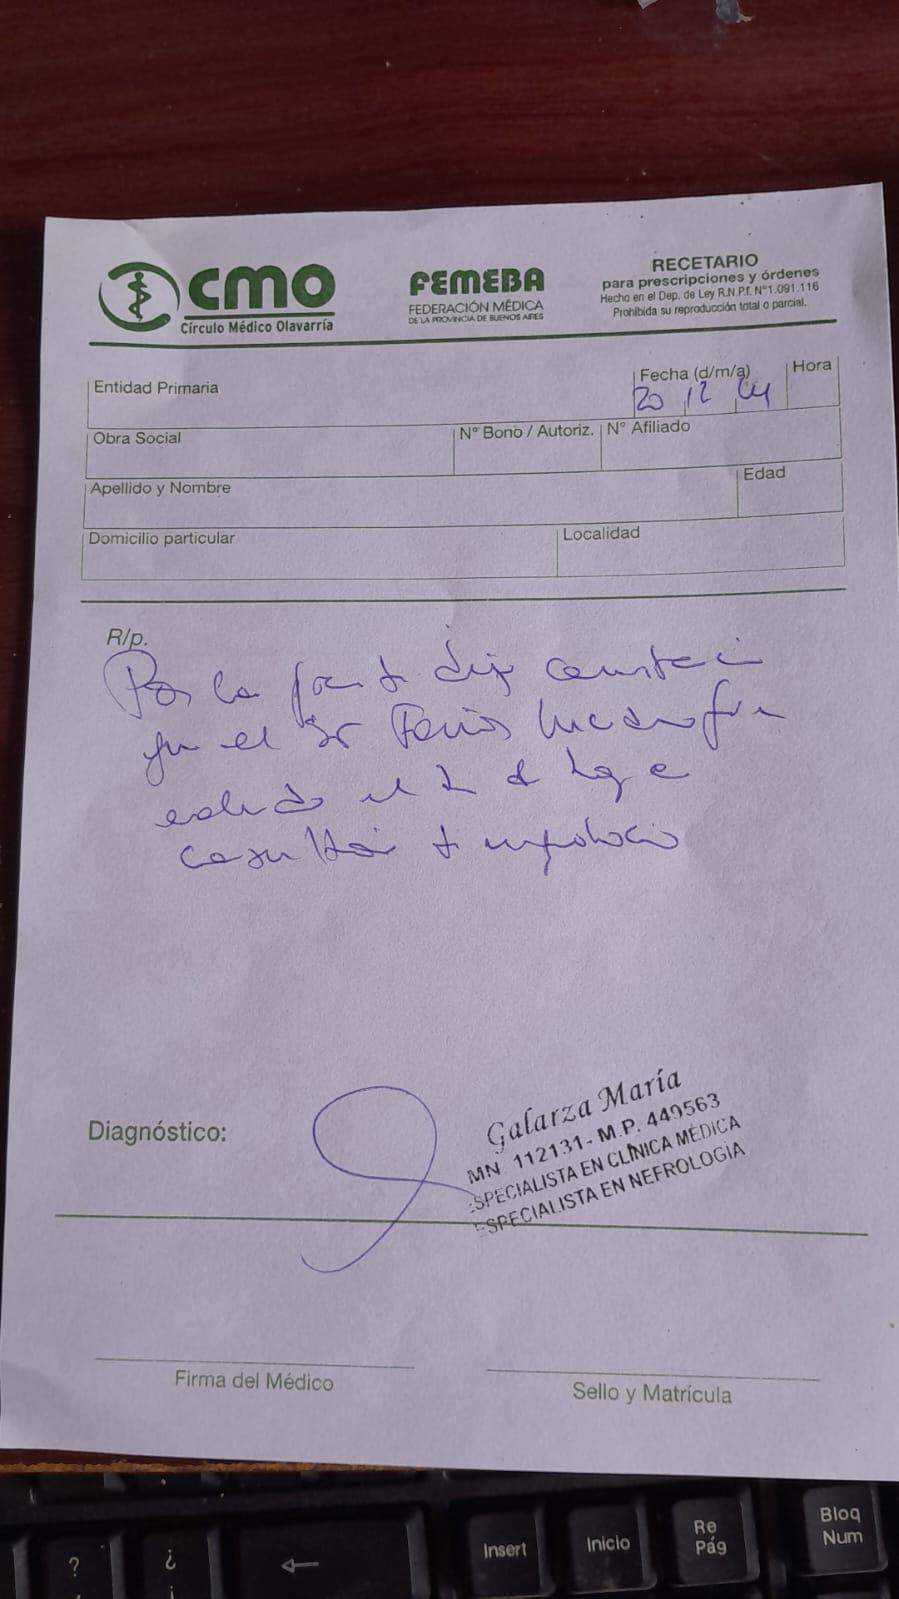 cmo
Círculo Médico Olavarría
FEMEBA
FEDERACIÓN MÉDICA
DE LA PROVINCIA DE BUENOS AIRES
RECETARIO
para prescripciones y órdenes
Hecho en el Dep. de Ley R.N.P.I. N°1.091.116
Prohibida su reproducción total o parcial.
Entidad Primaria
Fecha (d/m/a)
Hora
20 12 24
Obra Social
N° Bono / Autoriz.
N° Afiliado
Apellido y Nombre
Edad
Domicilio particular
Localidad
R/p.
Por la dejo
que el Sr
el de
Diagnóstico:
Galarza María
MN 112131 - M.P. 449563
SPECIALISTA EN CLÍNICA MÉDICA
ESPECIALISTA EN NEFROLOGIA
Firma del Médico
Sello y Matrícula
?
¿
¡
Insert
Inicio
Re
Pág
Bloq
Num